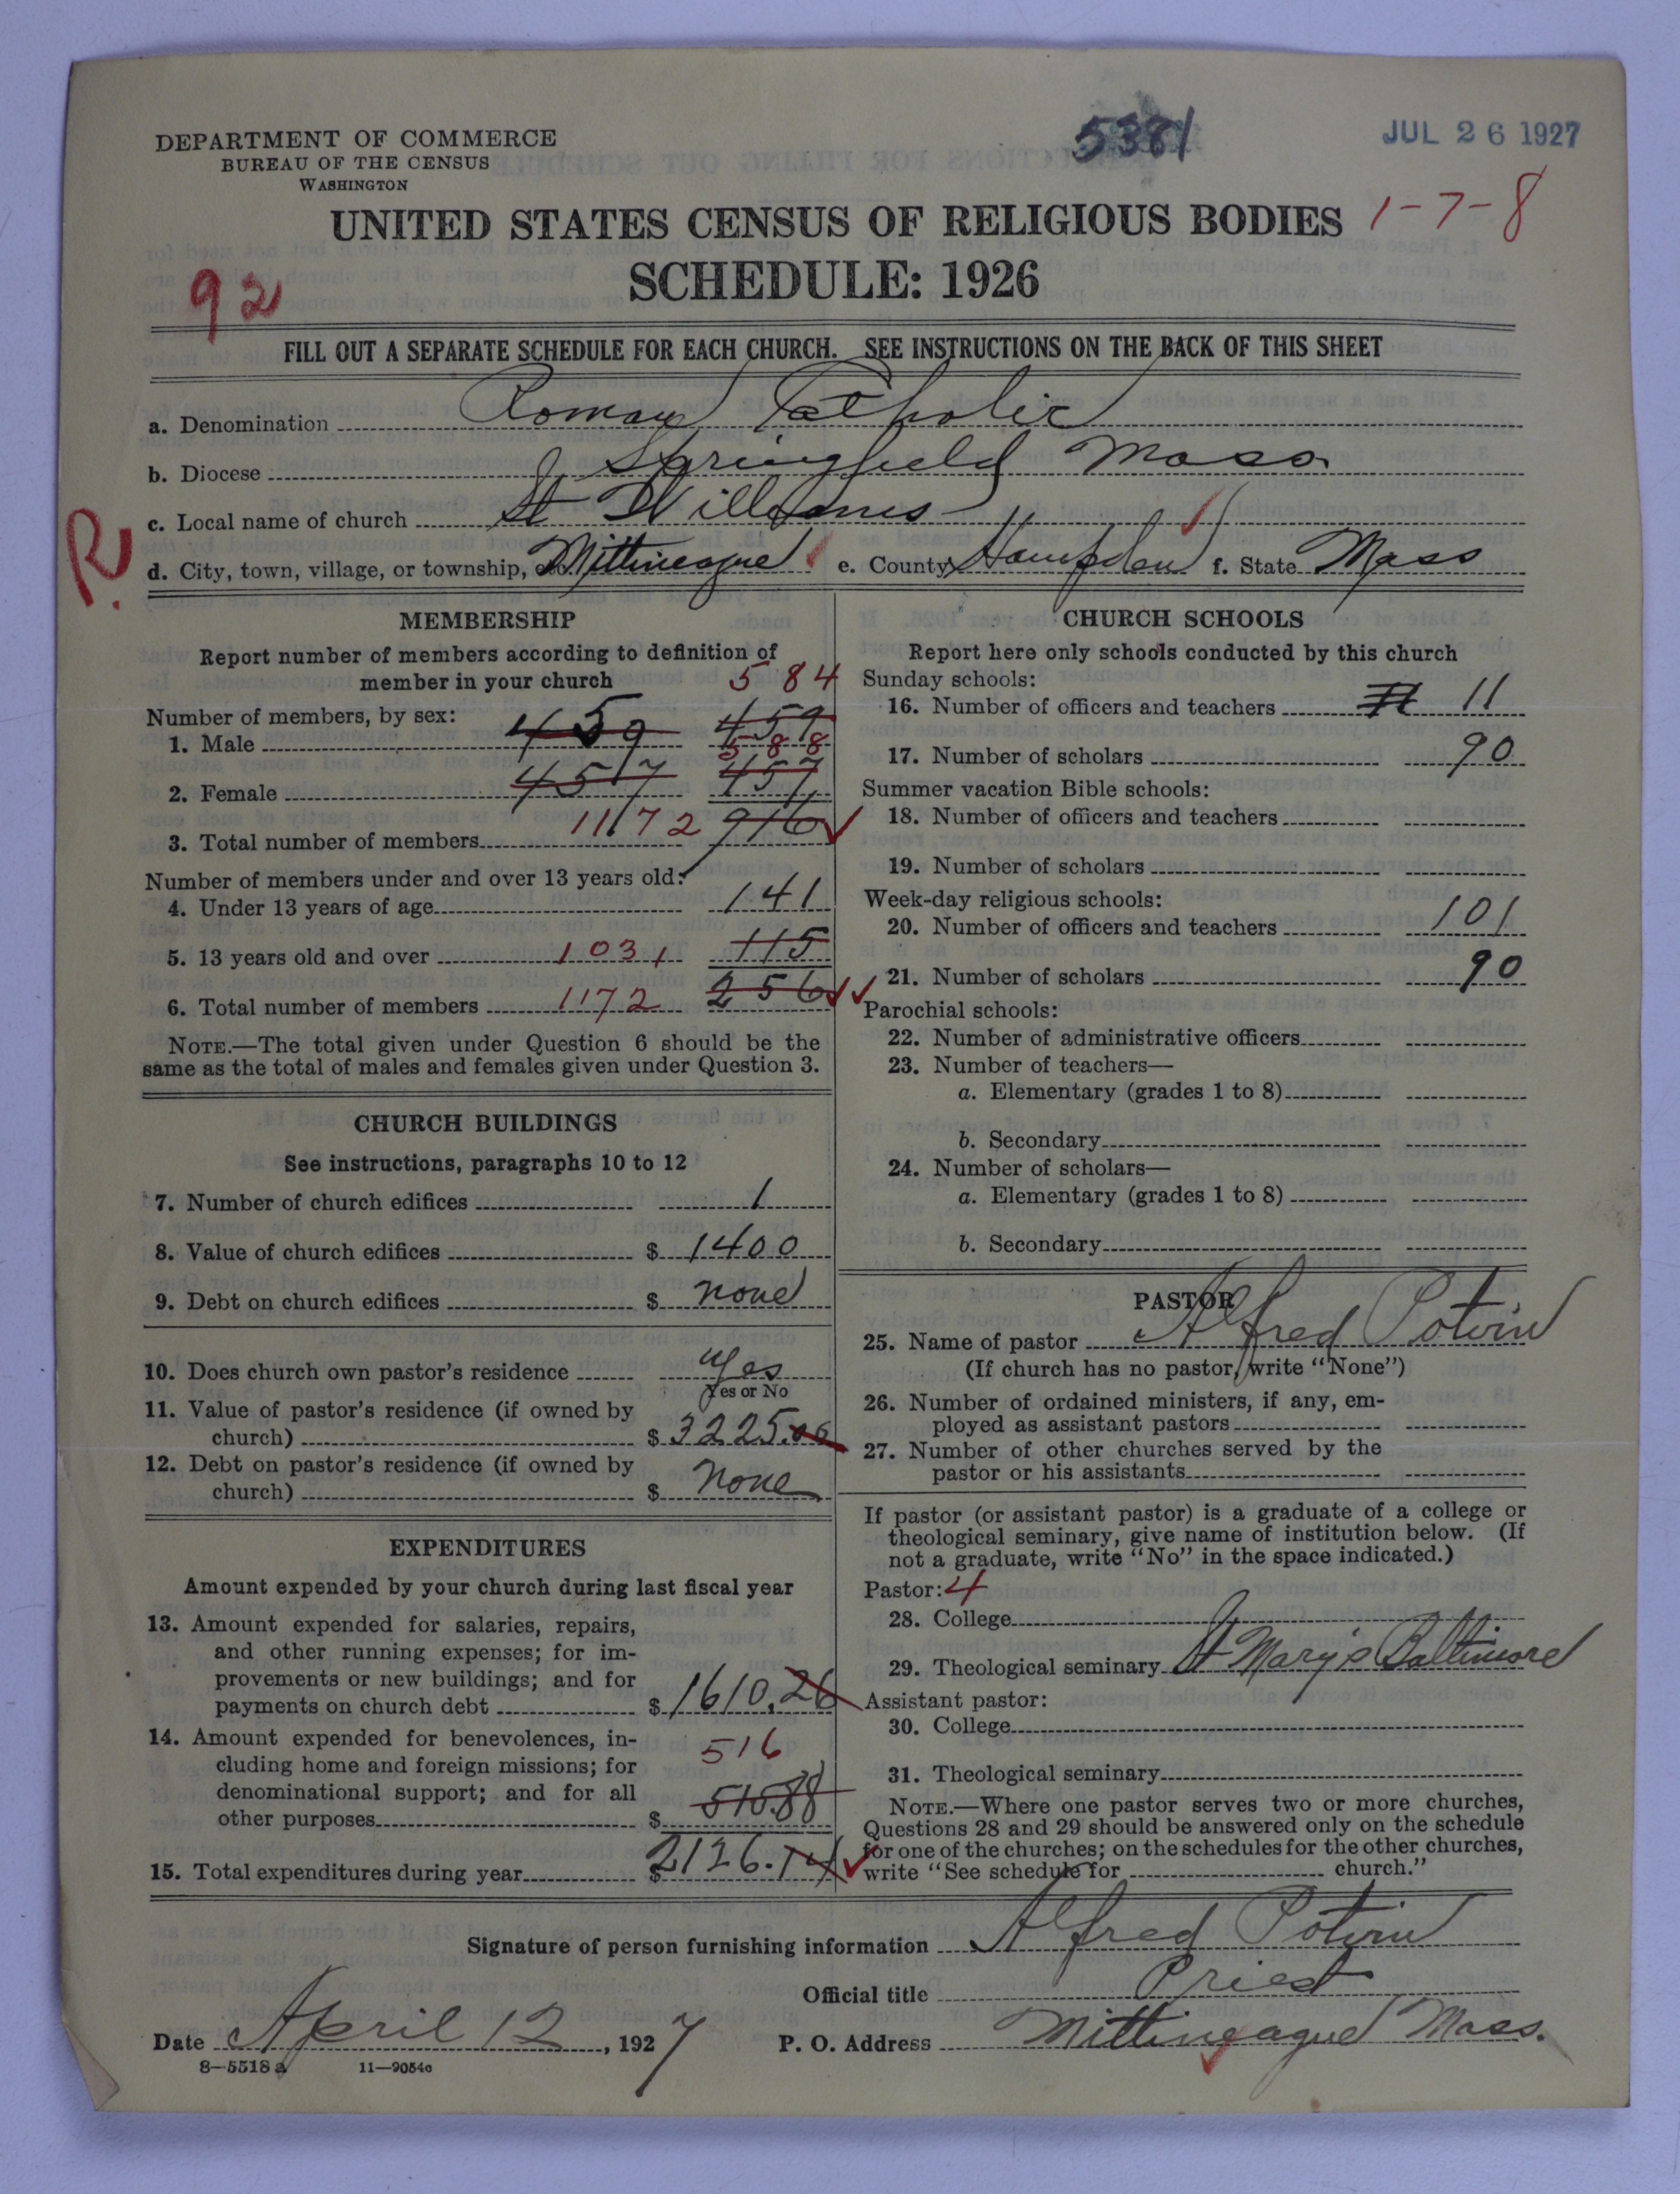 5381
JUL 26 1927
DEPARTMENT OF COMMERCE
BUREAU OF THE CENSUS
WASHINGTON
UNITED STATES CENSUS OF RELIGIOUS BODIES 1-7-8
SCHEDULE: 1926
92
FILL OUT A SEPARATE SCHEDULE FOR EACH CHURCH. SEE INSTRUCTIONS ON THE BACK OF THIS SHEET
a. Denomination Roman Catholic
b. Diocese Springfield Mass
c. Local name of church St Williams
R.
d. City, town, village, or township, etc. Mittineague e. County Hampden f. State Mass
MEMBERSHIP
Report number of members according to definition of
member in your church 584
Number of members, by sex:
1. Male 459 459
588
2. Female 457 457
3. Total number of members 1172 916
Number of members under and over 13 years old:
4. Under 13 years of age 141
5. 13 years old and over 1031 115
6. Total number of members 1172 256
NOTE.—The total given under Question 6 should be the
same as the total of males and females given under Question 3.
CHURCH BUILDINGS
See instructions, paragraphs 10 to 12
7. Number of church edifices 1
8. Value of church edifices $ 1400
9. Debt on church edifices $ none
10. Does church own pastor's residence yes
Yes or No
11. Value of pastor's residence (if owned by
church) $ 3225.00
12. Debt on pastor's residence (if owned by
church) $ none
EXPENDITURES
Amount expended by your church during last fiscal year
13. Amount expended for salaries, repairs,
and other running expenses; for im-
provements or new buildings; and for
payments on church debt $ 1610.26
14. Amount expended for benevolences, in-
cluding home and foreign missions; for 516
denominational support; and for all
other purposes $ 515.88
15. Total expenditures during year $ 2126.14
CHURCH SCHOOLS
Report here only schools conducted by this church
Sunday schools:
16. Number of officers and teachers 11
17. Number of scholars 90
Summer vacation Bible schools:
18. Number of officers and teachers
19. Number of scholars
Week-day religious schools:
20. Number of officers and teachers 101
21. Number of scholars 90
Parochial schools:
22. Number of administrative officers
23. Number of teachers—
a. Elementary (grades 1 to 8)
b. Secondary
24. Number of scholars—
a. Elementary (grades 1 to 8)
b. Secondary
PASTOR
25. Name of pastor Alfred Potvin
(If church has no pastor, write "None")
26. Number of ordained ministers, if any, em-
ployed as assistant pastors
27. Number of other churches served by the
pastor or his assistants
If pastor (or assistant pastor) is a graduate of a college or
theological seminary, give name of institution below. (If
not a graduate, write "No" in the space indicated.)
Pastor: 4
28. College
29. Theological seminary St Mary's Baltimore
Assistant pastor:
30. College
31. Theological seminary
NOTE.—Where one pastor serves two or more churches,
Questions 28 and 29 should be answered only on the schedule
for one of the churches; on the schedules for the other churches,
write "See schedule for church."
Signature of person furnishing information Alfred Potvin
Official title Priest
Date April 12, 1927 P. O. Address Mittineague Mass.
8—5518 a 11—9054c